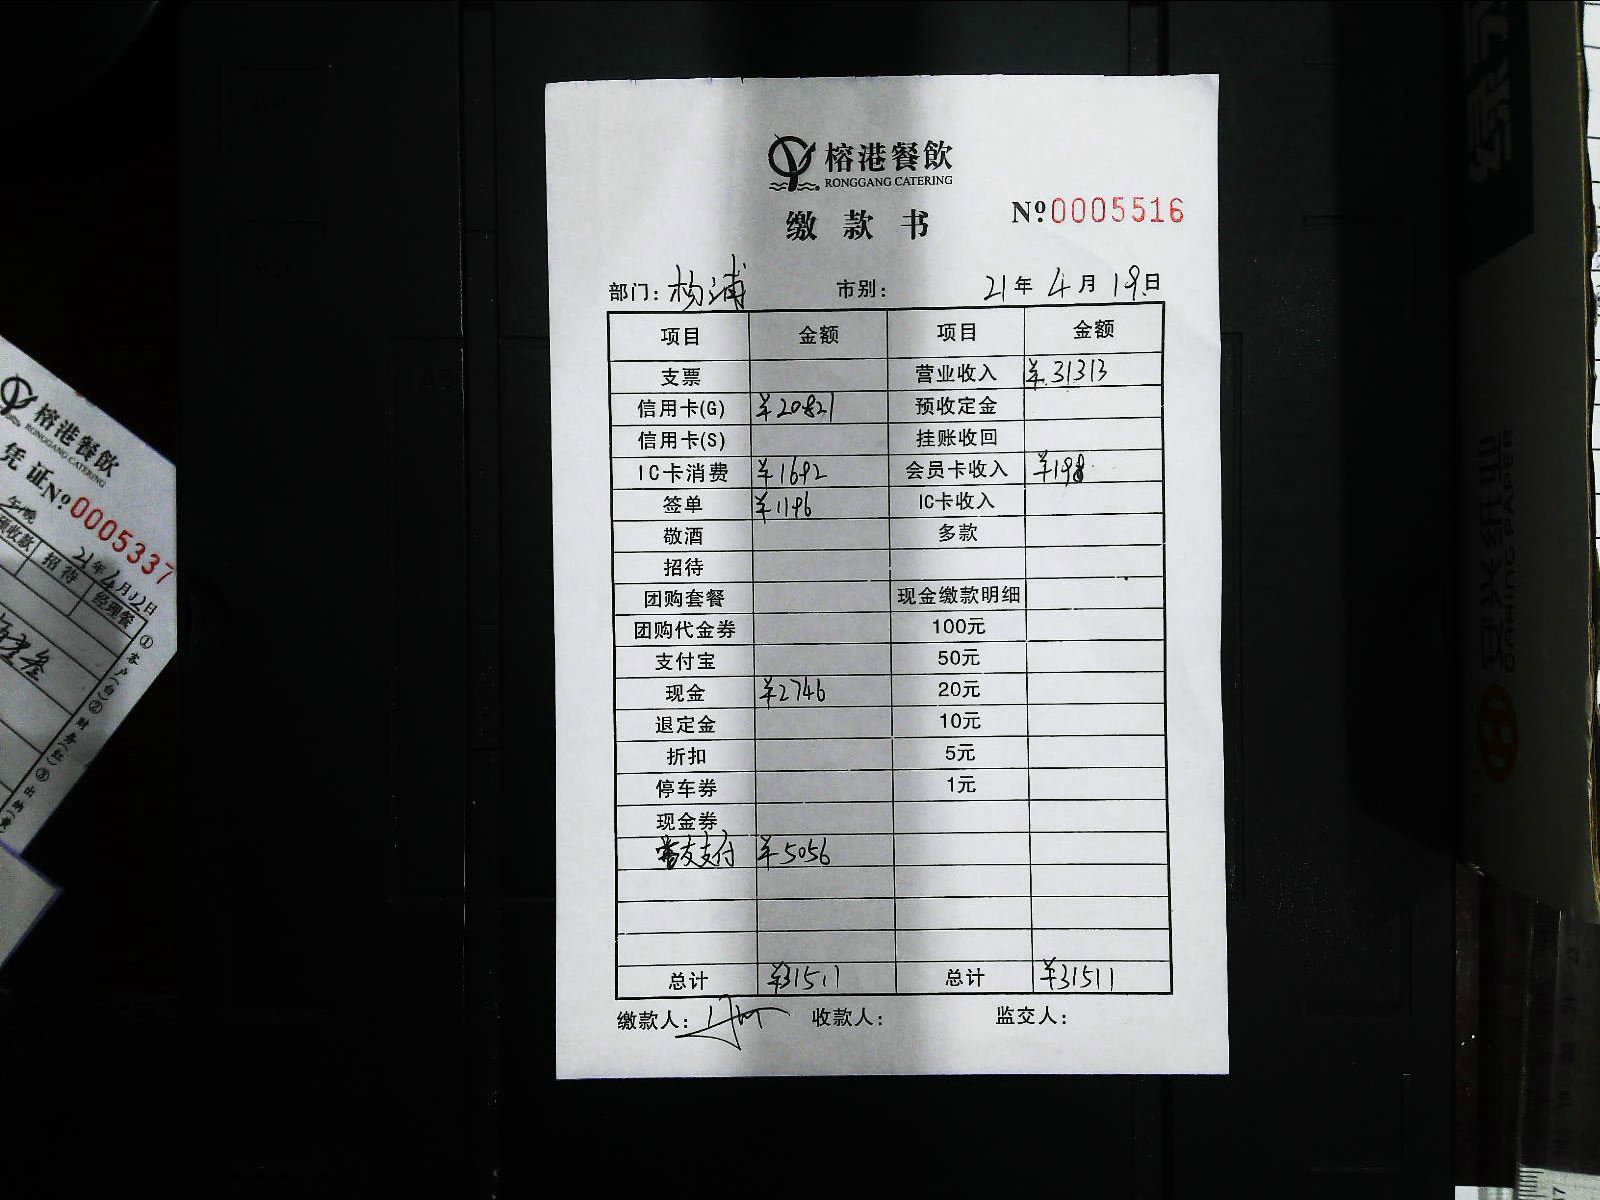 榕港餐飲
RONGGANG CATERING
缴款书
Nº0005516
部门：杨浦 市别： 21年4月19日
项目 金额 项目 金额
支票 营业收入 ¥31313
信用卡(G) ¥20821 预收定金
信用卡(S) 挂账收回
IC卡消费 ¥1692 会员卡收入 ¥198
签单 ¥1196 IC卡收入
敬酒 多款
招待
团购套餐 现金缴款明细
团购代金券 100元
支付宝 50元
现金 ¥2746 20元
退定金 10元
折扣 5元
停车券 1元
现金券
友支付 ¥5056
总计 ¥31511 总计 ¥31511
缴款人： 收款人： 监交人：
榕港餐飲
RONGGANG CATERING
凭证Nº0005337
21年4月12日
收款 招待 经理餐
①客户(白)②财务(红)③出纳